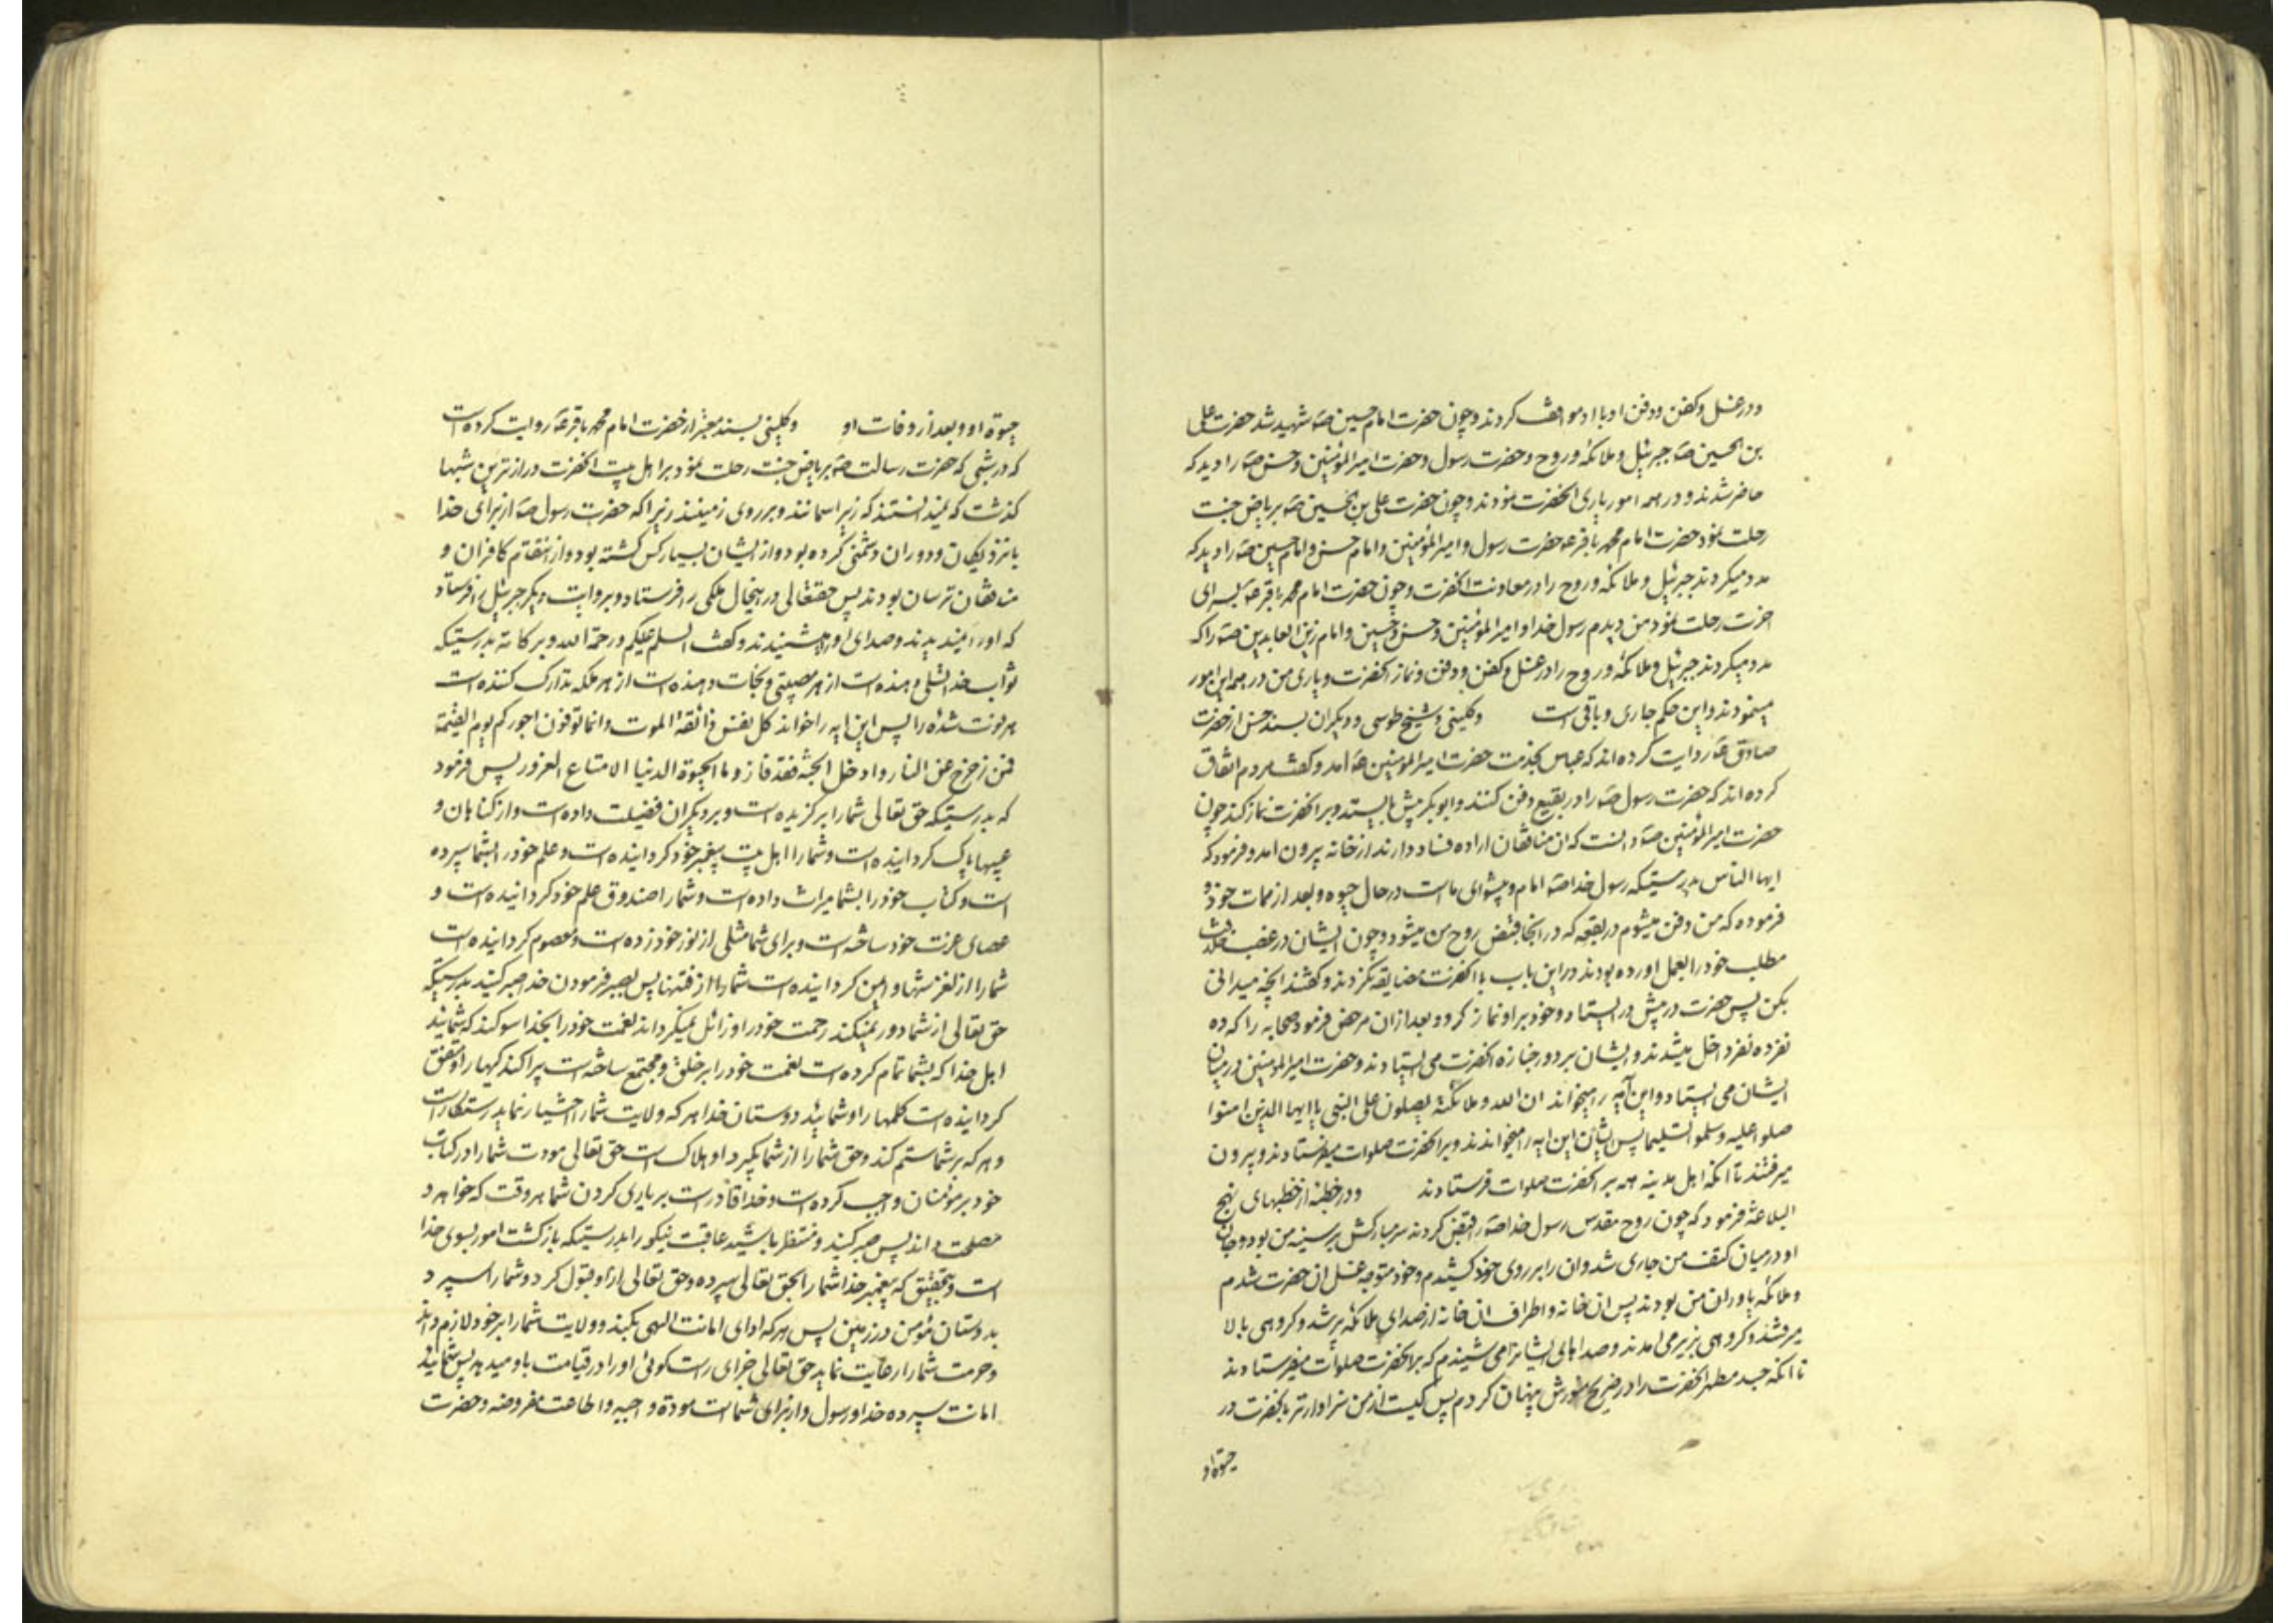 ودر غسل وکفن ودفن او با او موافقت کردند وچون حضرت امام حسین صَه شهید شد حضرت علی
بن الحسین صَه جبرئیل و ملائکه و روح و حضرت رسول و حضرت امیر المؤمنین و حسن صَه را دید که
حاضر شدند و در همه امور یاری انحضرت نمودند و چون حضرت علی بن الحسین صَه بریاض جنت
رحلت نمود حضرت امام محمد باقر عَه حضرت رسول و امیر المؤمنین و امام حسن و امام حسین صَه را دید که
مدد میکردند جبرئیل و ملائکه و روح را در معاونت انحضرت و چون حضرت امام محمد باقر صَه بسرای
اخرت رحلت نمود من دیدم رسول خدا و امیر المؤمنین و حسن و حسین و امام زین العابدین صَه را که
مدد میکردند جبرئیل و ملائکه و روح را در غسل و کفن و دفن و نماز انحضرت و یاری من در همه این امور
مینمودند و این حکم جاری و باقی است وکلینی و شیخ طوسی و دیگران بسند حسن از حضرت
صادق عَه روایت کرده اند که عباس بخدمت حضرت امیر المومنین صَه امد و کفت مردم اتفاق
کرده اند که حضرت رسول صَه را در بقیع دفن کنند و ابو بکر پیش بایستد و بر انحضرت نماز کند چون
حضرت امیر المؤمنین صَه دانست که ان منافقان اراده فساد دارند از خانه بیرون امد و فرمود که
ایها الناس بدرستیکه رسول خدا صَه امام و پیشوای ماست در حال حیوه و بعد از ممات خود و
فرموده که من دفن میشوم در بقعه که در انجا قبض روح من میشود و چون ایشان در غصب خلافت
مطلب خود را بعمل اورده بودند در این باب با انحضرت مضایقه نکردند و کفتند انچه میدانی
بکن پس حضرت در پیش در ایستاد و خود بر او نماز کرد و بعد ازان مرخص فرمود صحابه را که ده
نفر ده نفر داخل میشدند و ایشان بر دور جنازه انحضرت می ایستادند و حضرت امیر المومنین در میان
ایشان می ایستاد و این آیه را میخواند ان الله و ملائکته یصلون علی النبی یا ایها الذین امنوا
صلوا علیه و سلموا تسلیما پس ایشان این ایه را میخواندند و بر انحضرت صلوات میفرستادند و بیرون
میرفتند تا انکه اهل مدینه همه بر انحضرت صلوات فرستادند ودر خطبه از خطبهای نهج
البلاغه فرمود که چون روح مقدس رسول خدا صَه را قبض کردند سر مبارکش بر سینه من بود و جان
او در میان کف من جاری شد و ان را بر روی خود کشیدم و خود متوجه غسل ان حضرت شدم
و ملائکه یاوران من بودند پس ان خانه و اطراف ان خانه از صدای ملائکه پر شد و کروهی بالا
میرفتند و کروهی بزیر می امدند و صداهای ایشانرا می شنیدم که بر انحضرت صلوات میفرستادند
تا انکه جسد مطهر انحضرت را در ضریح منورش پنهان کردم پس کیست از من سزاوارتر بانحضرت در
حیوة او
حیوة او و بعد از وفات او وکلینی بسند معتبر از حضرت امام محمد باقر صَه روایت کرده است
که در شبی که حضرت رسالت صَه بریاض جنت رحلت نمود بر اهل بیت انحضرت درازترین شبها
کذشت که نمیدانستند که زیر اسمانند و بر روی زمینند زیرا که حضرت رسول صَه از برای خدا
با نزدیکان و دوران دشمنی کرده بود و از ایشان بسیار کس کشته بود و از انتقام کافران و
منافقان ترسان بودند پس حقتعالی در اینحال ملکی را فرستاد و بروایت دیگر جبرئیل را فرستاد
که اورا نمیدیدند و صدای او را میشنیدند و کفت السلم علیکم و رحمة الله و برکاته بدرستیکه
ثواب خدا تسلی دهنده است از هر مصیبتی و نجات دهنده است از هر مهلکه و تدارک کننده است
هر فوت شده را پس این ایه را خواند کل نفس ذائقة الموت و انما توفون اجورکم یوم القیمة
فمن زحزح عن النار و ادخل الجنة فقد فاز و ما الحیوة الدنیا الا متاع الغرور پس فرمود
که بدرستیکه حق تعالی شما را برکزیده است و بر دیکران فضیلت داده است و از کناهان و
عیبها پاک کردانیده است و شما را اهل بیت پیغمبر خود کردانیده است و علم خود را بشما سپرده
است و کتاب خود را بشما میراث داده است و شما را صندوق علم خود کردانیده است و
عصای عزت خود ساخته است و برای شما مثلی از نور خود زده است و معصوم کردانیده است
شما را از لغزشها و ایمن کردانیده است شما را از فتنها پس بصبر فرمودن خدا صبر کنید بدرستیکه
حق تعالی از شما دور نمیکند رحمت خود را و زائل نمیکرداند نعمت خود را بخدا سوکند که شمائید
اهل خدا که بشما تمام کرده است نعمت خود را بر خلق و مجتمع ساخته است پراکندکیها را و متفق
کردانیده است کلمها را و شمائید دوستان خدا هر که ولایت شما را اختیار نماید رستکار است
و هر که بر شما ستم کند و حق شما را از شما بکیرد او هلاک است حق تعالی مودت شما را در کتاب
خود بر مؤمنان واجب کرده است و خدا قادر است بر یاری کردن شما هر وقت که خواهد و
مصلحت داند پس صبر کنید و منتظر باشید عاقبت نیکو را بدرستیکه بازکشت امور بسوی خدا
است و بتحقیق که پیغمبر خدا شما را بحق تعالی سپرده و حق تعالی از او قبول کرد و شما را سپرد
بدوستان مؤمن در زمین پس هر که ادای امانت الهی بکند و ولایت شما را بر خود لازم داند
و حرمت شما را رعایت نماید حق تعالی جزای راست کوئی او را در قیامت باو میدهد پس شمائید
امانت سپرده خدا و رسول و از برای شماست مودة واجبه و اطاعت مفروضه و حضرت